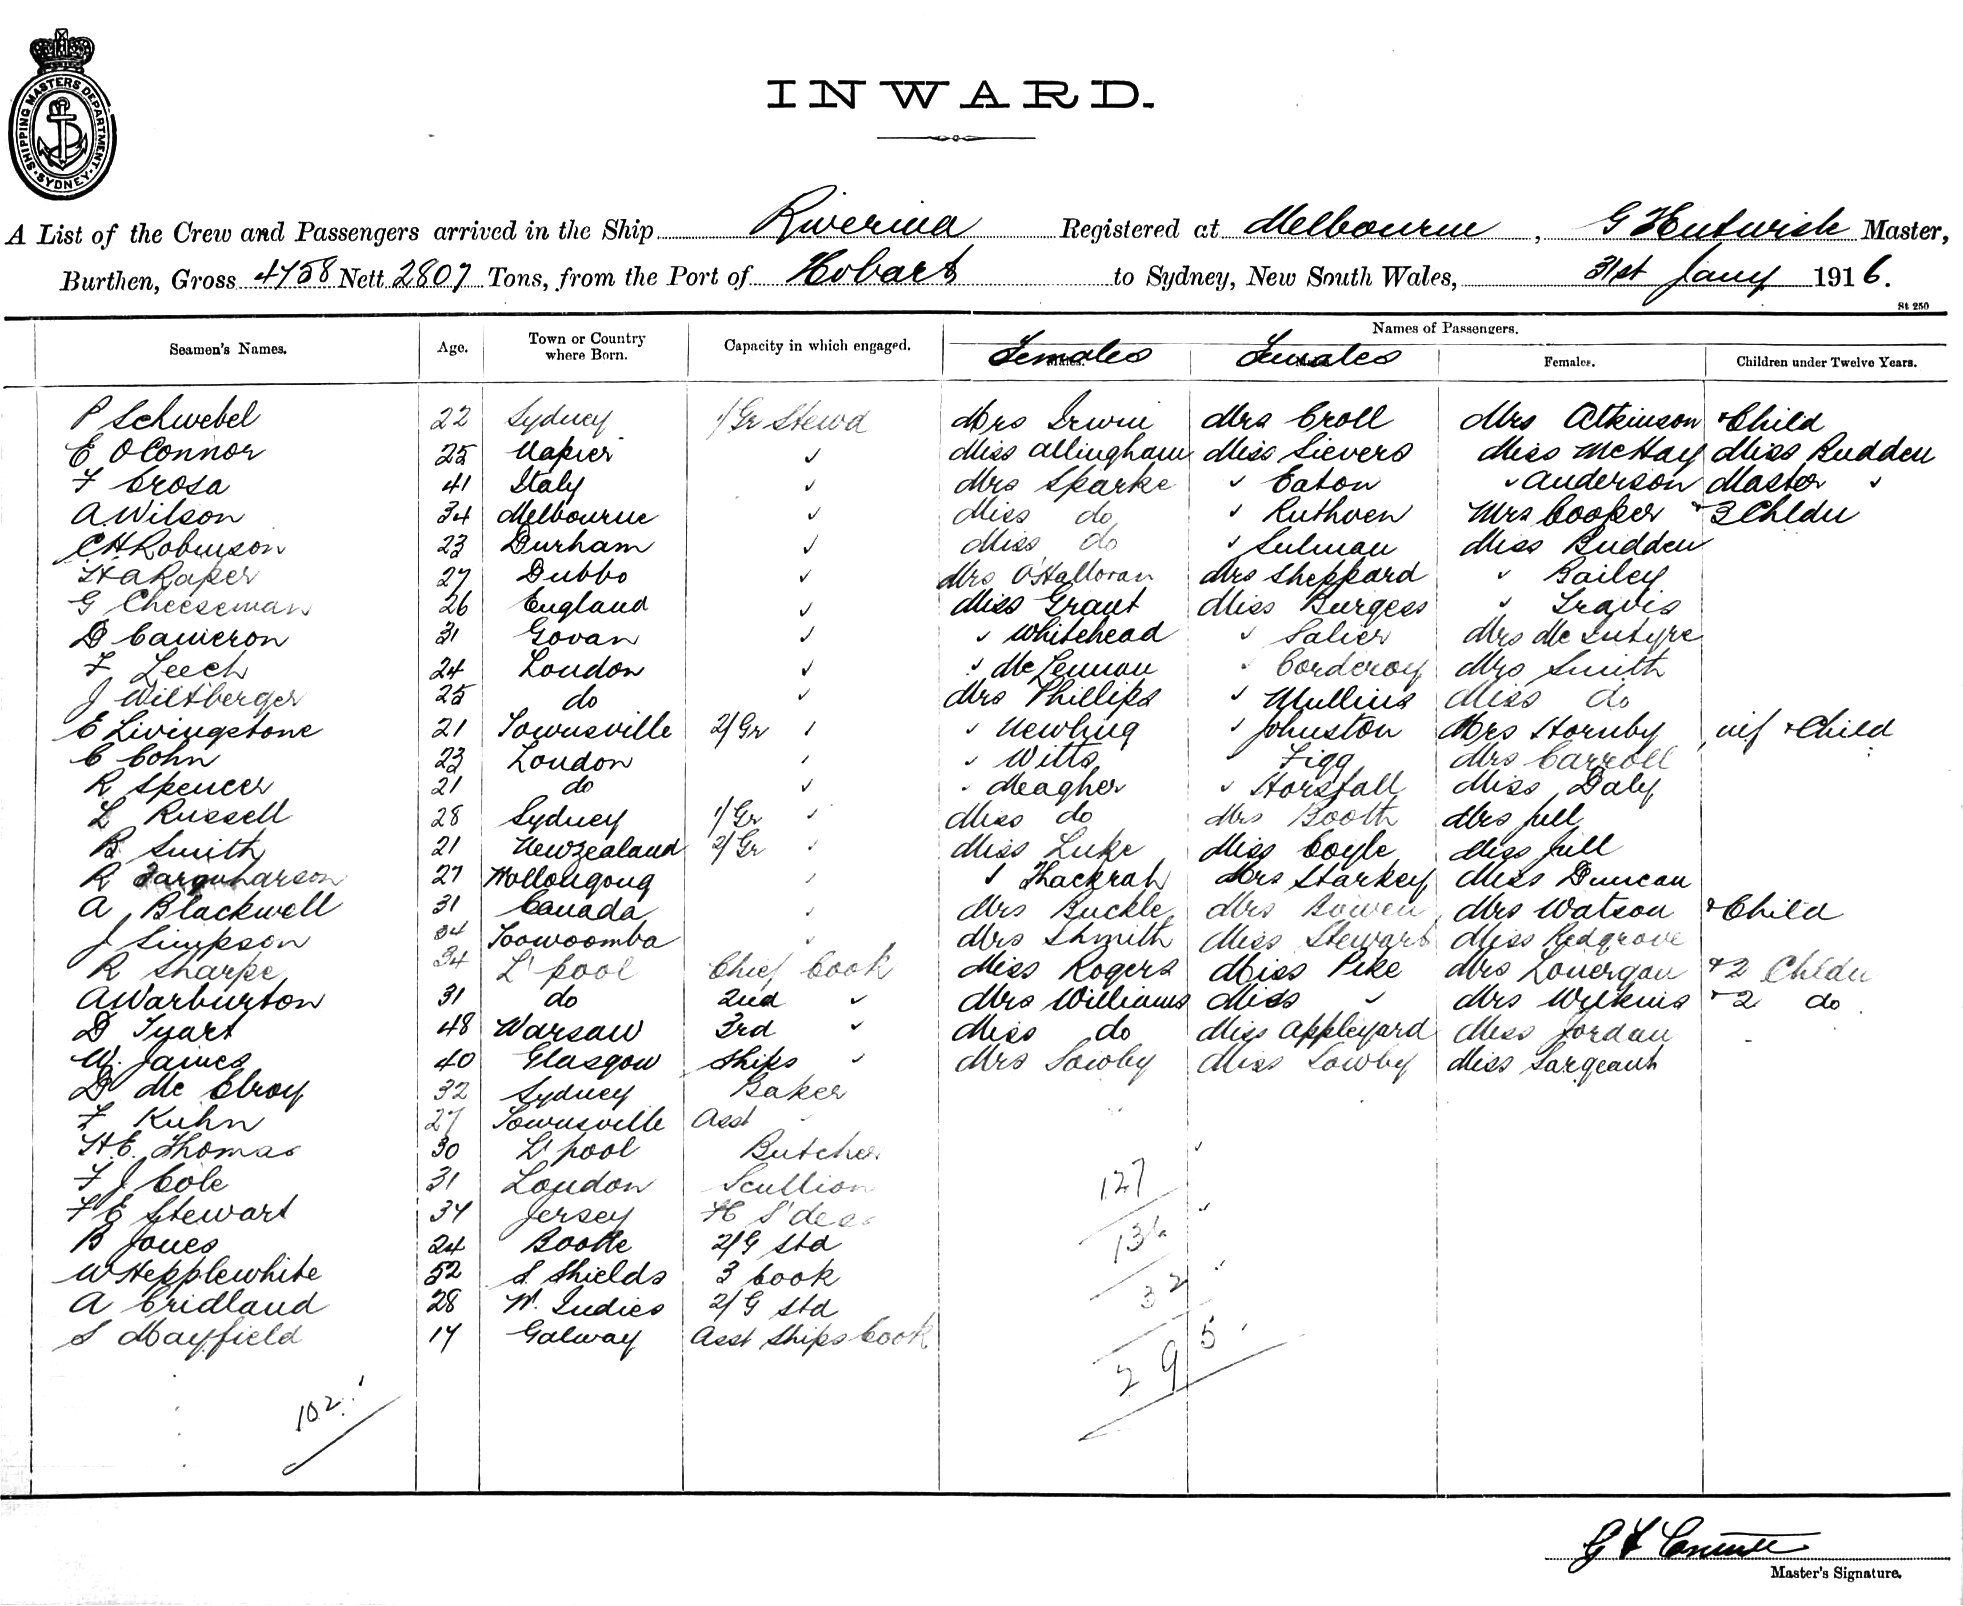 SHIPPING MASTERS DEPARTMENT
SYDNEY
INWARD.
A List of the Crew and Passengers arrived in the Ship Riverina Registered at Melbourne, G Hutwish Master,
Burthen, Gross 4758 Nett 2807 Tons, from the Port of Hobart to Sydney, New South Wales, 31st Jany 1916.
St 250
Seamen's Names. Age. Town or Country where Born. Capacity in which engaged. Names of Passengers.
Females Females Females. Children under Twelve Years.
P Schwebel 22 Sydney 1/Gr Stewd Mrs Irwin Mrs Croll Mrs Atkinson + Child
E O'Connor 25 Napier ✓ Miss Allingham Miss Sievers Miss McHay Miss Budden
F Crosa 41 Italy ✓ Mrs Sparke ✓ Eaton ✓ Anderson Master ✓
A. Wilson 34 Melbourne ✓ Miss do ✓ Ruthven Mrs Cooper + 3 Chldn
C H Robinson 23 Durham ✓ Miss do ✓ Sulman Miss Budden
H A Raper 27 Dubbo ✓ Mrs O'Halloran Mrs Sheppard ✓ Bailey
G Cheeseman 26 England ✓ Miss Grant Miss Burgess ✓ Travis
D Cameron 31 Govan ✓ ✓ Whitehead ✓ Salier Mrs McIntyre
F Leech 24 London ✓ ✓ McLennan ✓ Corderoy Mrs Smith
J Wiltberger 25 do ✓ Mrs Phillips ✓ Mullins Miss do
E Livingstone 21 Townsville 2/Gr ✓ ✓ Newling ✓ Johnston Mrs Hornby inf + Child
C Cohn 23 London ✓ ✓ Witts ✓ Figg Mrs Carroll
R Spencer 21 do ✓ ✓ Meagher ✓ Horsfall Miss Daly
L Russell 28 Sydney 1/Gr ✓ Miss do Mrs Booth Mrs Jull
B Smith 21 New Zealand 2/Gr ✓ Miss Luke Miss Coyle Miss Jull
R Farquharson 27 Wollongong ✓ ✓ Thackrah Mrs Starkey Miss Duncan
A Blackwell 31 Canada ✓ Mrs Buckle Mrs Bowen Mrs Watson + Child
J Simpson 34 Toowoomba ✓ Mrs Shmith Miss Stewart Miss Redgrove
R Sharpe 34 L'pool Chief Cook Miss Rogers Miss Pike Mrs Lonergan + 2 Chldn
A Warburton 31 do 2nd ✓ Mrs Williams Miss ✓ Mrs Wilkins + 2 do
D Tyart 48 Warsaw 3rd ✓ Miss do Miss Appleyard Miss Jordan
W. James 40 Glasgow Ships ✓ Mrs Sowby Miss Sowby Miss Sargeant
D McElroy 32 Sydney Baker
F Kuhn 27 Townsville Asst
H.E. Thomas 30 L'pool Butcher
F J Cole 31 London Scullion
F E Stewart 34 Jersey
B Jones 24 Bootle 2/G Std
W Hepplewhite 52 S. Shields 3 Cook
A Cridland 28 W. Indies 2/G Std
S Mayfield 17 Galway Asst Ships Cook
127
136
32
295
102
Master's Signature.